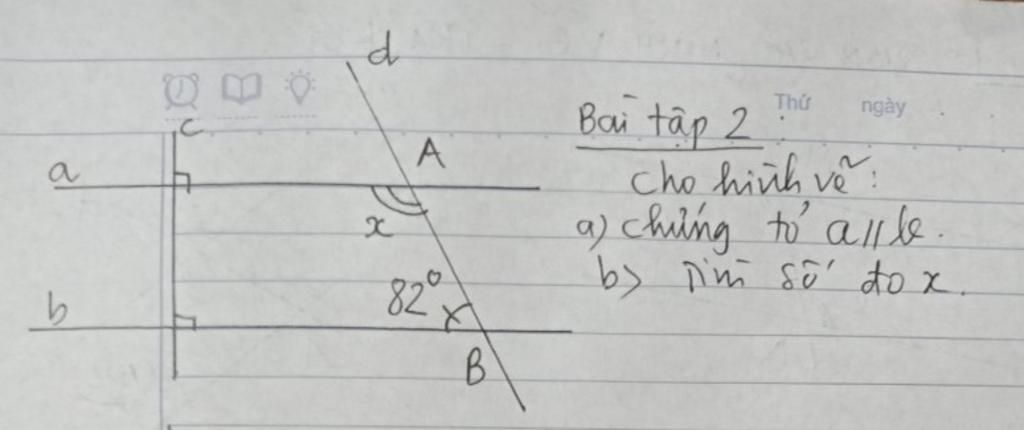 d
Thứ ngày
Bài tập 2 :
c
A
a
cho hình vẽ:
x
a) chứng tỏ a // b.
b) Tìm số đo x.
82°
b
B